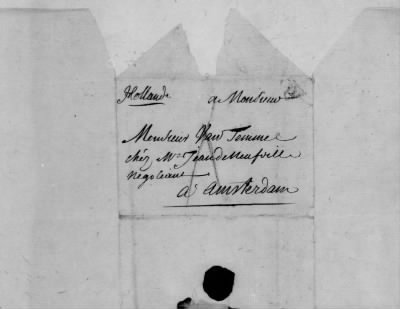 Hollande
a Monsieur
Monsieur Van Temmel
chéz Mrs Jean de Neufville
negociant
a amsterdam